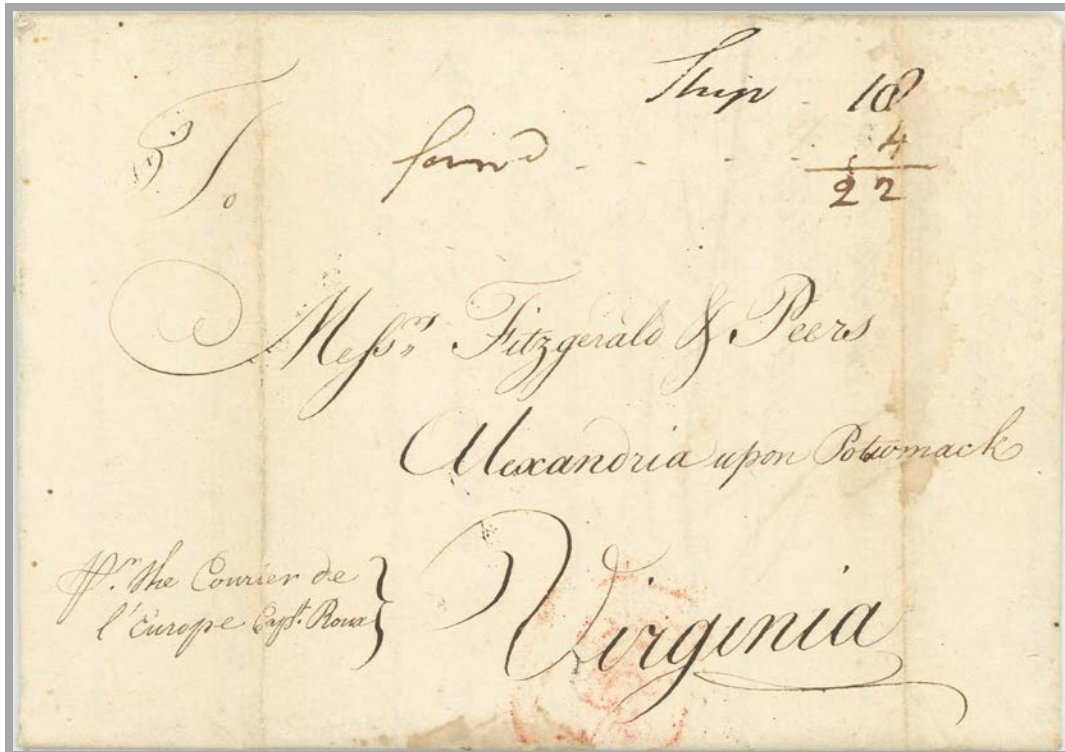 Ship 18
To forwd 4
22
Messrs Fitzgerald & Peers
Alexandria upon Potowmack
Virginia
Pr. the Courier de
l'Europe Capt. Roux